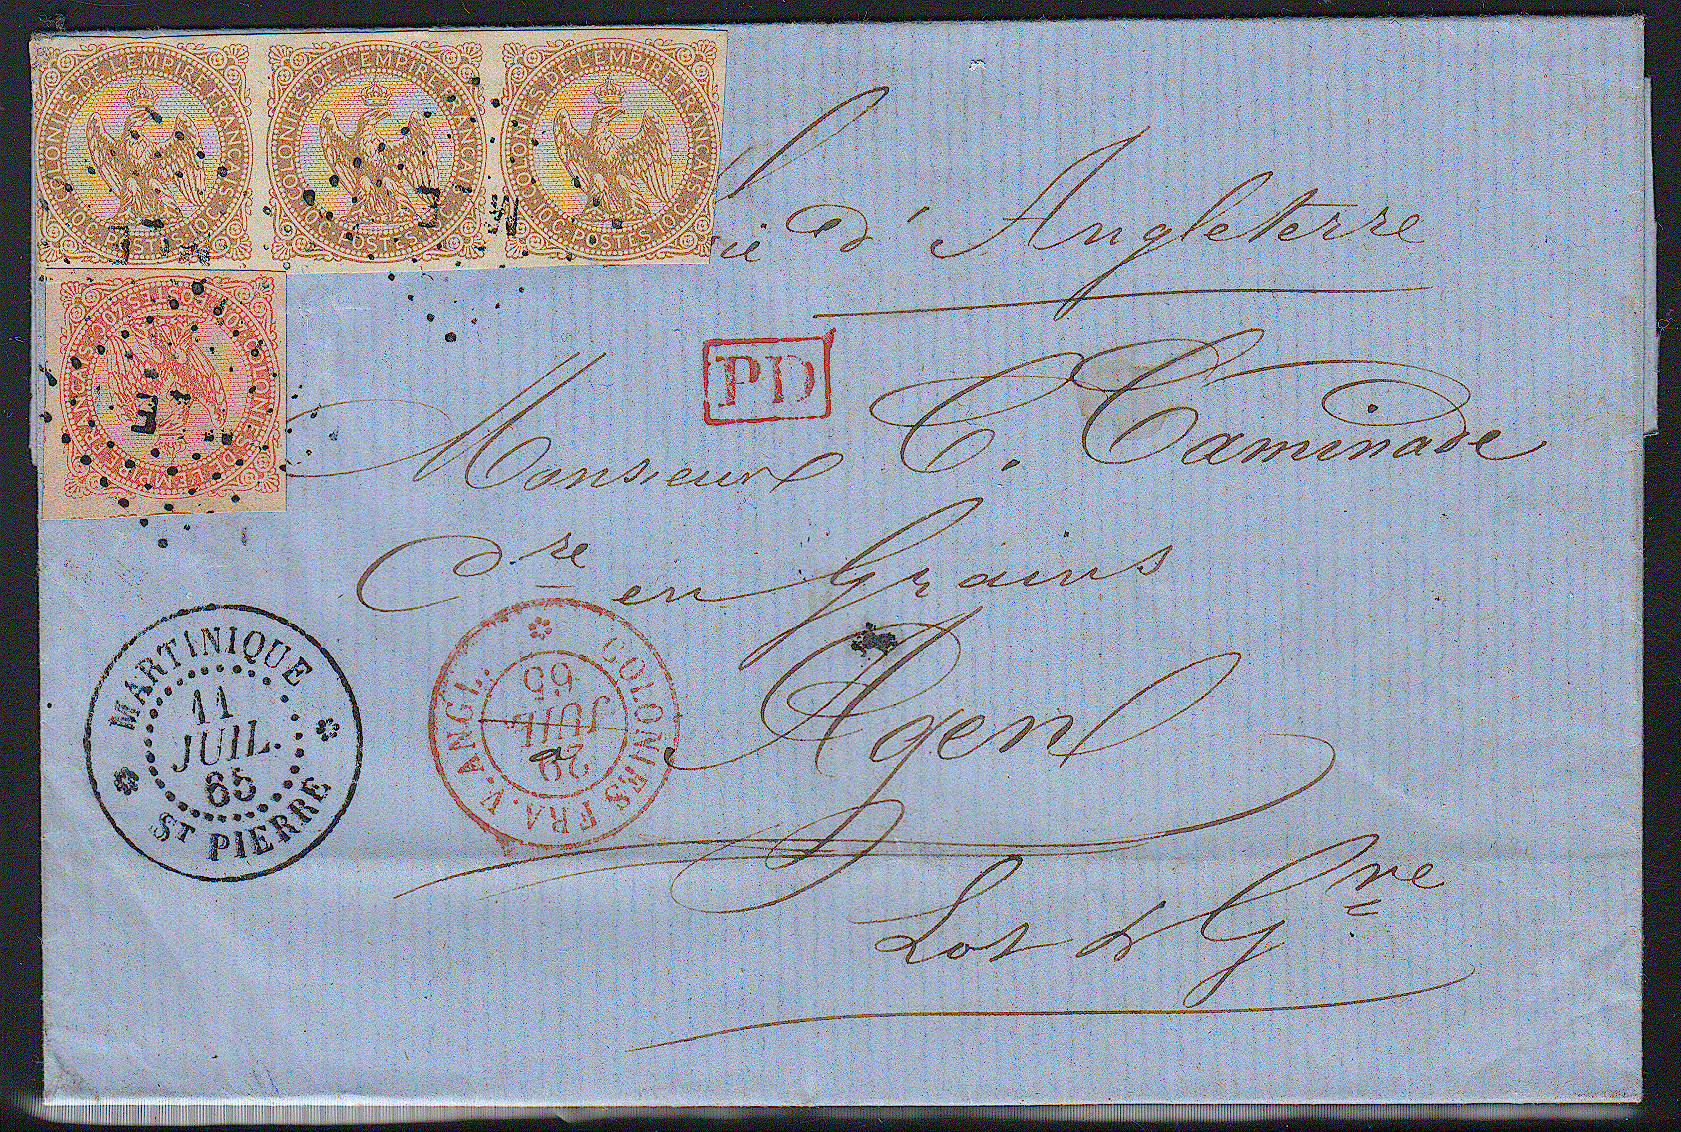 COLONIES DE L'EMPIRE FRANÇAIS 10C POSTES 10C
COLONIES DE L'EMPIRE FRANÇAIS 10C POSTES 10C
COLONIES DE L'EMPIRE FRANÇAIS 10C POSTES 10C
d'Angleterre
PD
Monsieur C. Caminade
Cre en Grains
Agen
Lot & Gne
MARTINIQUE
11
JUIL.
65
ST PIERRE
COLONIES FRA. V. ANGL.
29
JUIL
65